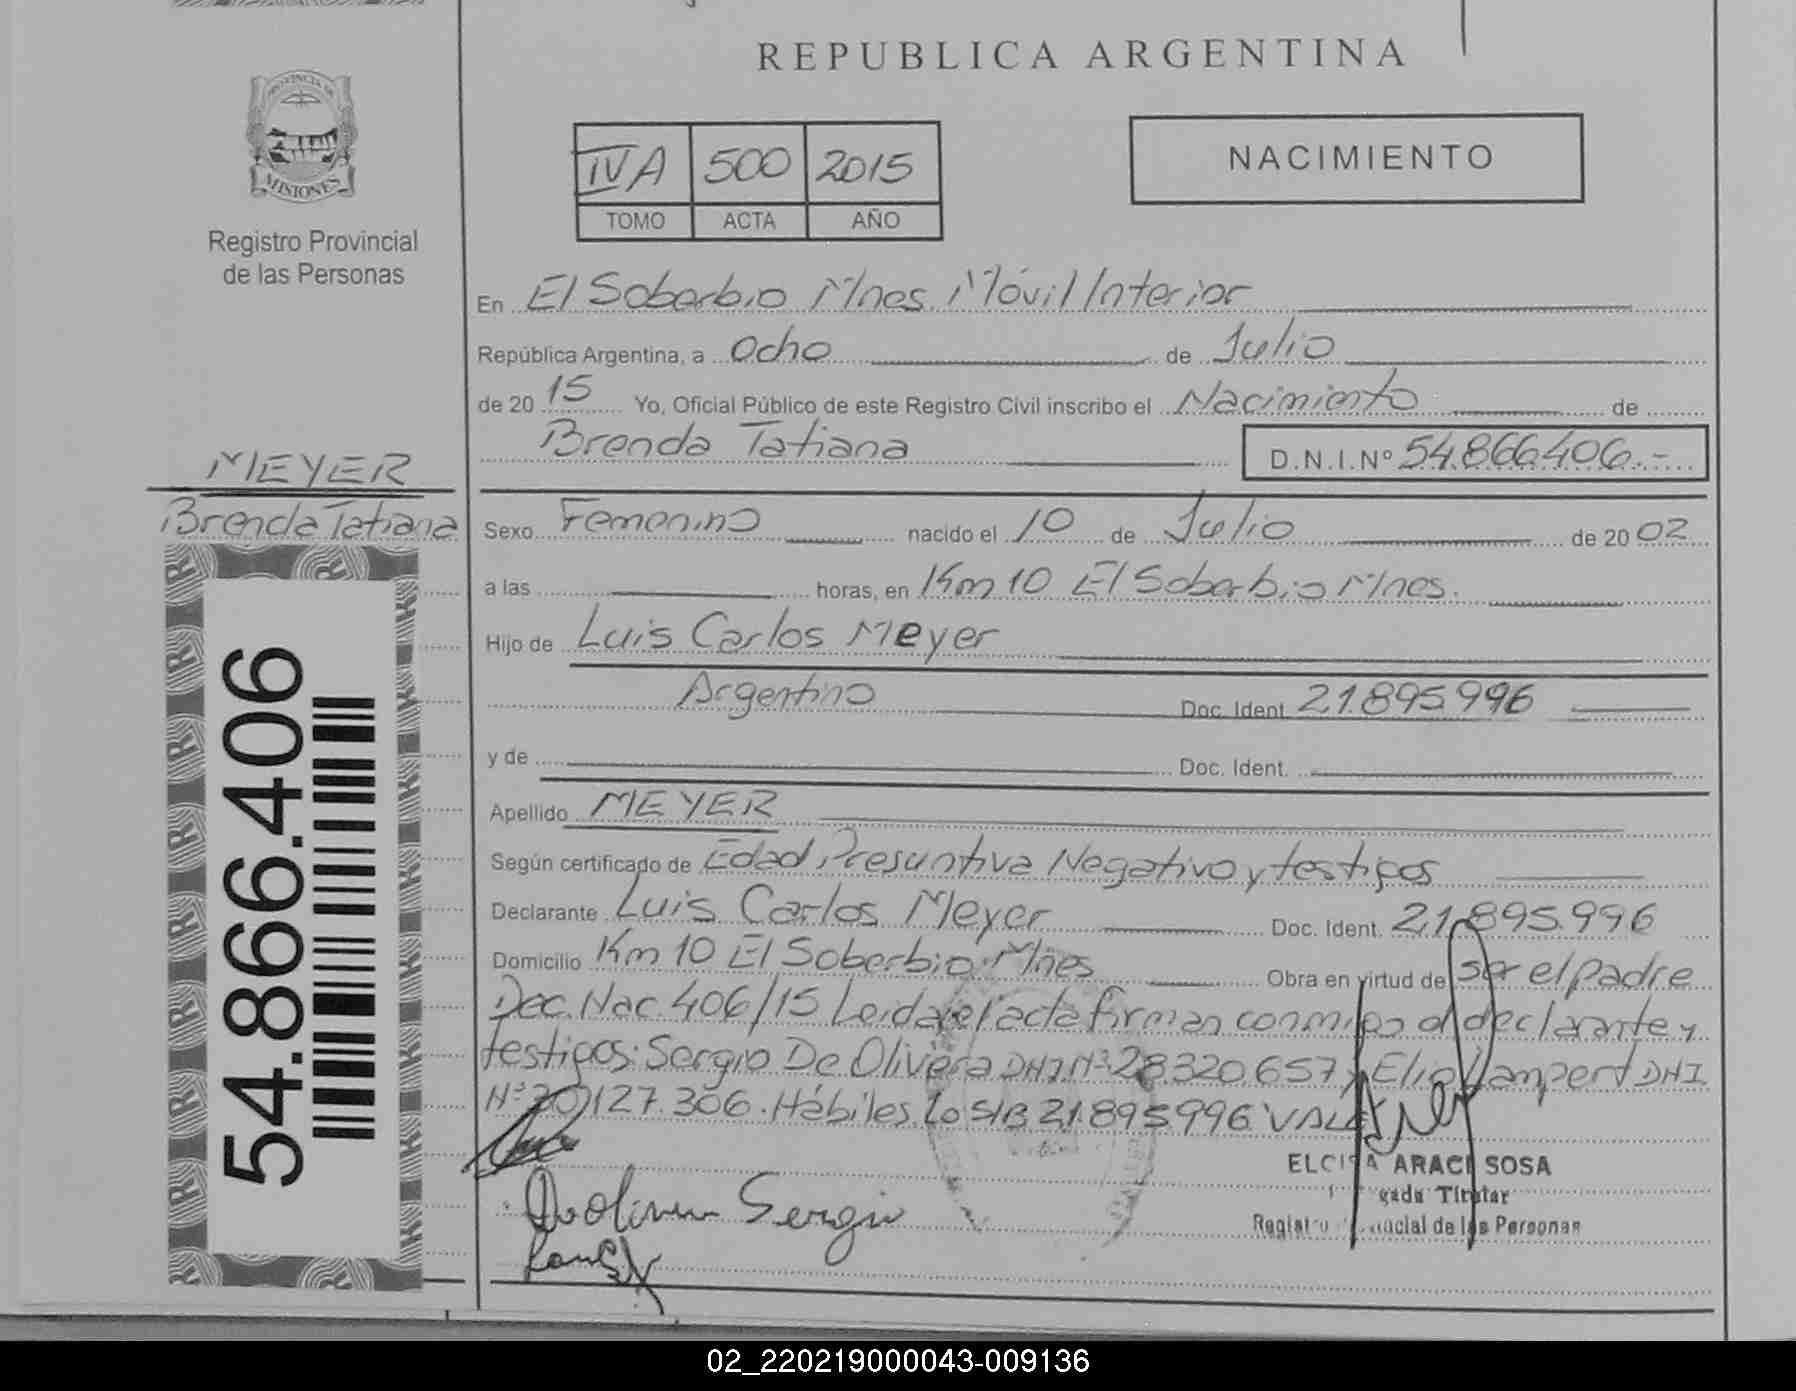 REPUBLICA ARGENTINA
PROVINCIA DE
MISIONES
Registro Provincial
de las Personas
IVA 500 2015
TOMO ACTA AÑO
NACIMIENTO
En El Soberbio Mnes. Móvil Interior
República Argentina, a Ocho de Julio
de 20 15 Yo, Oficial Público de este Registro Civil inscribo el Nacimiento de
Brenda Tatiana D.N.I.Nº 54.866.406.-
MEYER
Brenda Tatiana
54.866.406
Sexo Femenino nacido el 10 de Julio de 20 02
a las horas, en Km 10 El Soberbio Mnes.
Hijo de Luis Carlos Meyer
Argentino Doc. Ident. 21.895.996
y de Doc. Ident.
Apellido MEYER
Según certificado de Edad Presuntiva Negativo y testigos
Declarante Luis Carlos Meyer Doc. Ident. 21.895.996
Domicilio Km 10 El Soberbio Mnes Obra en virtud de ser el padre
Dec. Nac. 406/15 Leida el acta firman conmigo el declarante y
testigos: Sergio De Olivera DNI Nº 28.320.657 y Elio Lampert DNI
Nº 20.127.306. Hábiles. Lo S/B 21.895.996 VALE
ARACI SOSA
Titular
de las Personas
Sergio
02_220219000043-009136